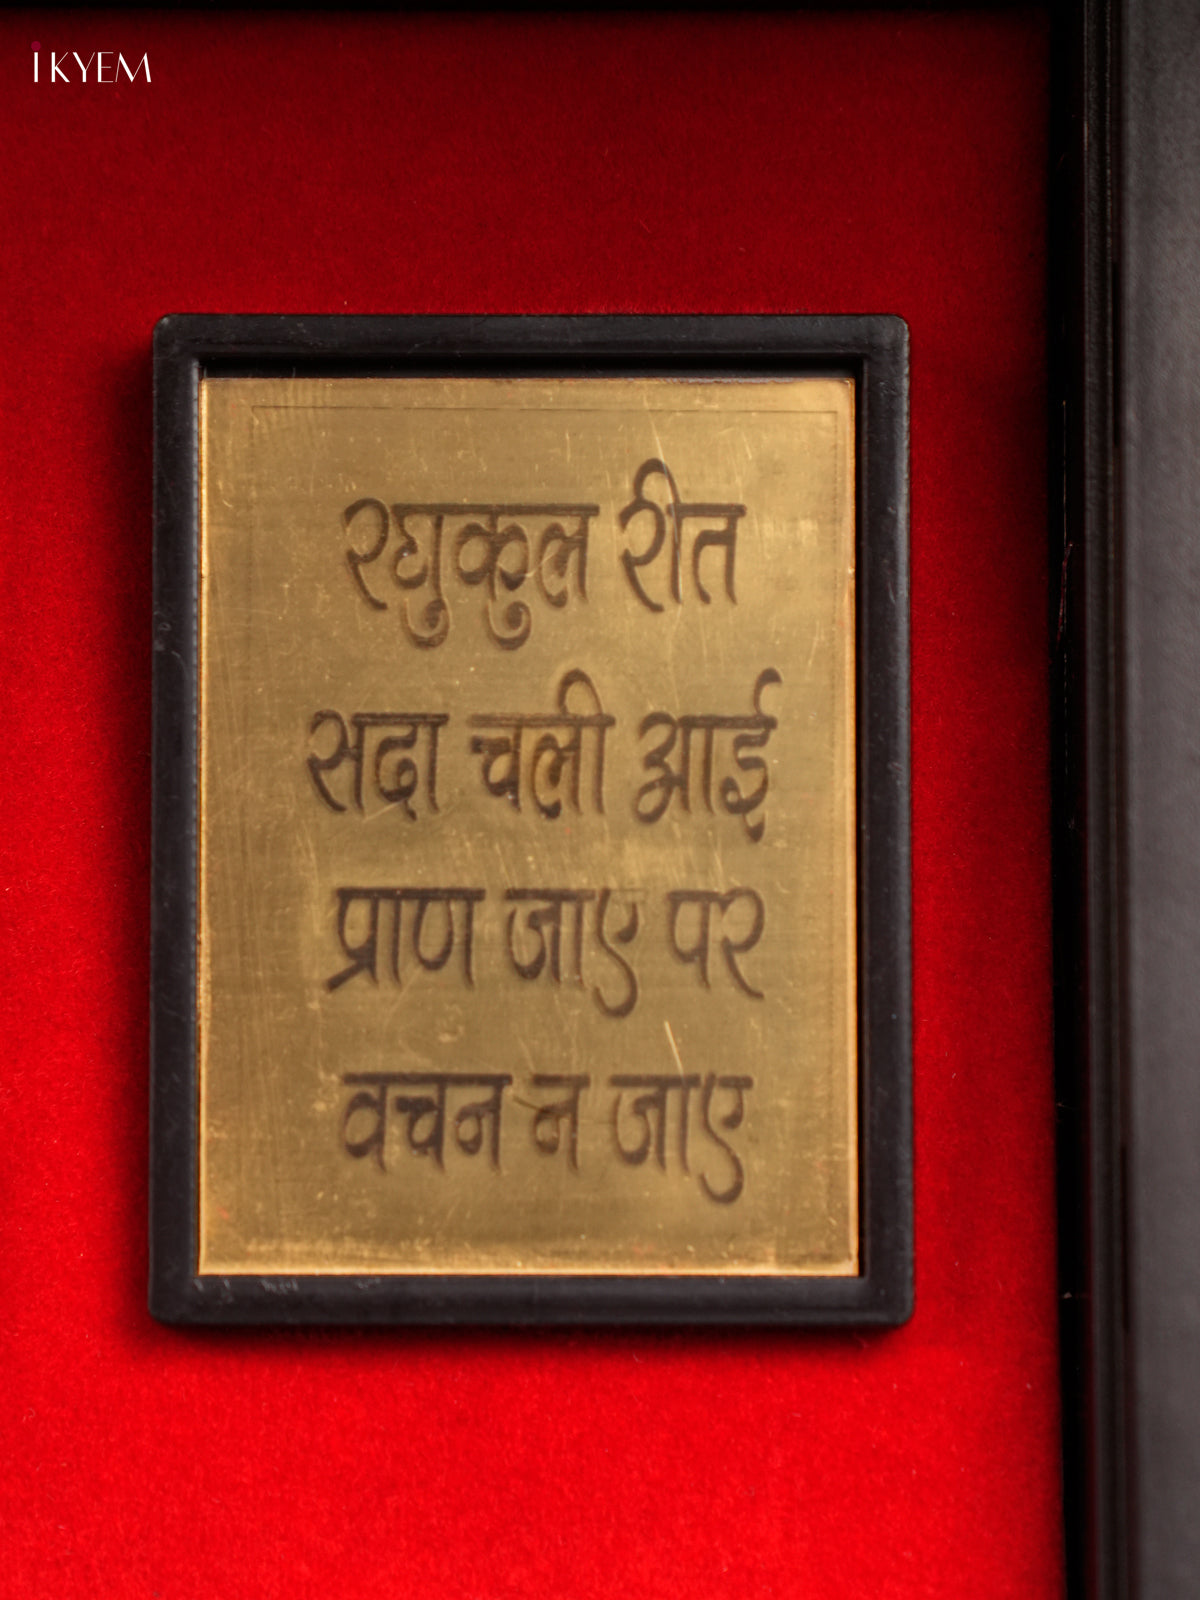 iKYEM
रघुकुल रीत
सदा चली आई
प्राण जाए पर
वचन न जाए